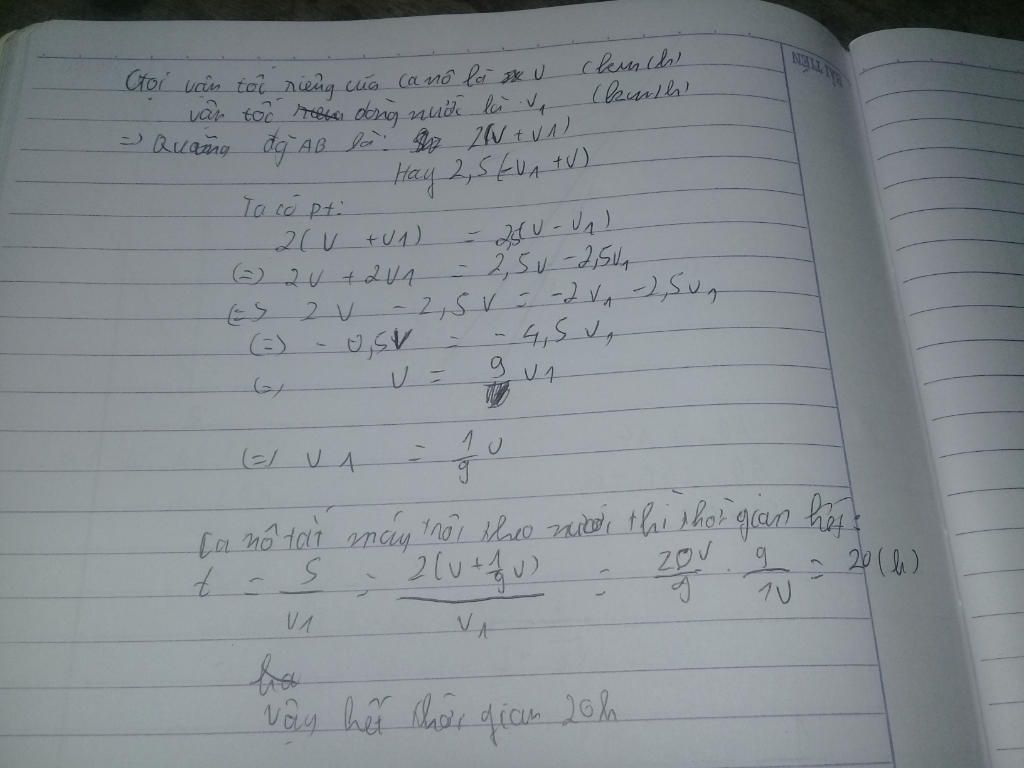 HẢI TIẾN
Gọi vận tốc riêng của ca nô là v (km/h)
vận tốc dòng nước là v1 (km/h)
=> Quãng đg AB là: 2(v + v1)
Hay 2,5(-v1 + v)
Ta có pt:
2(v + v1) = 2,5(v - v1)
(=) 2v + 2v1 = 2,5v - 2,5v1
(=) 2v - 2,5v = -2v1 - 2,5v1
(=) - 0,5v = - 4,5v1
(=) v = 9 v1
(=) v1 = 1/9 v
Ca nô tắt máy trôi theo nước thì thời gian hết:
t = S/v1 = 2(v + 1/9 v)/v1 = 20v/9 . 9/1v = 20 (h)
Vậy hết thời gian 20h